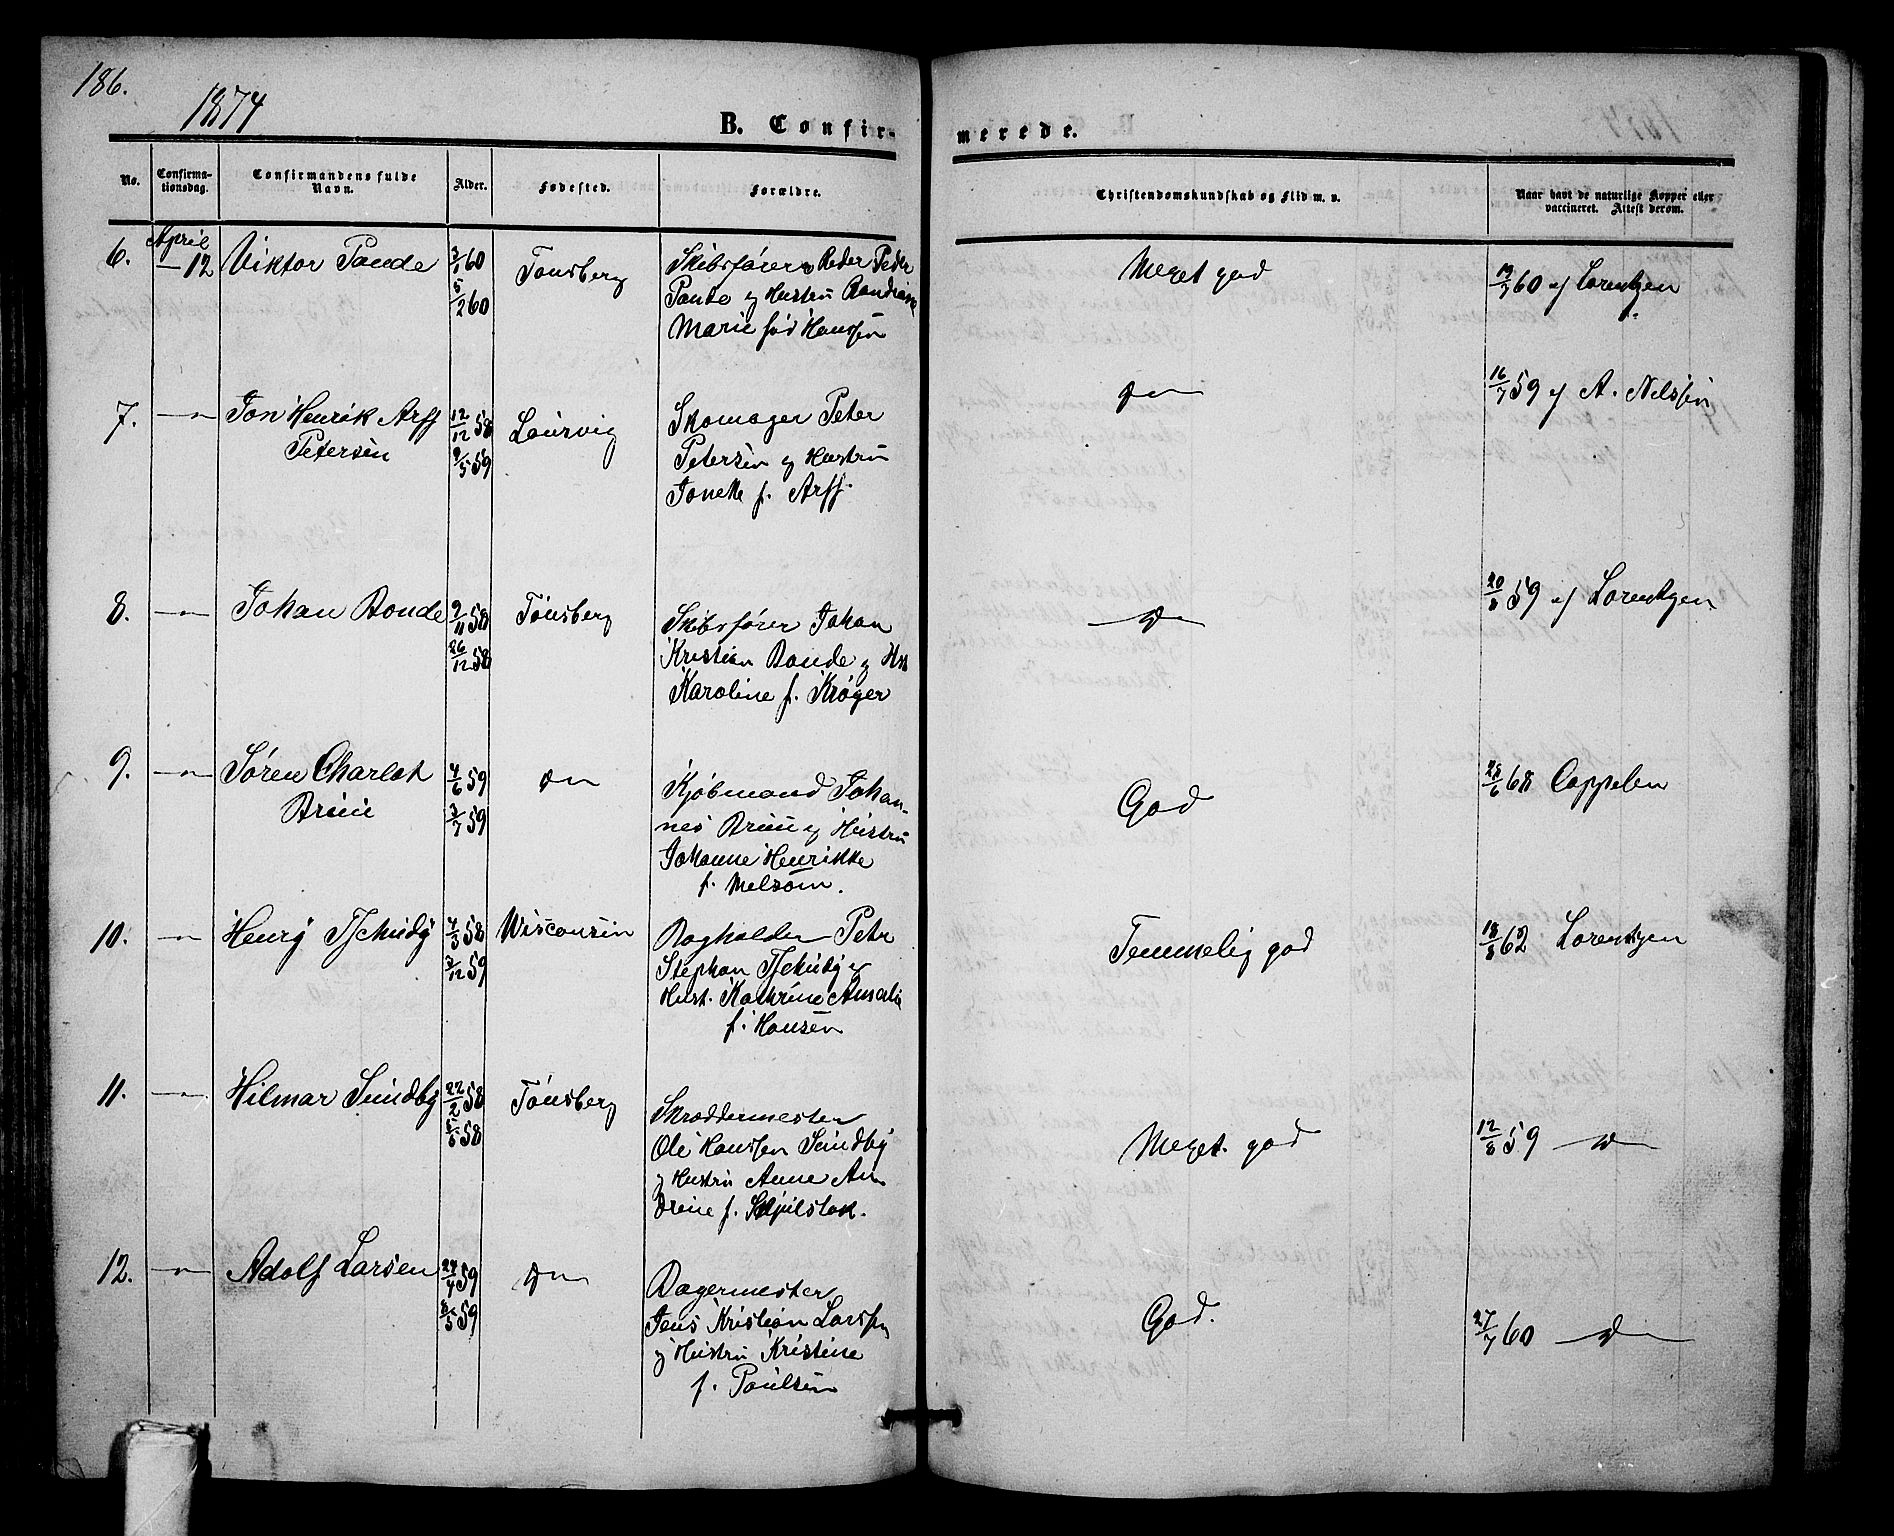 186.
1874
B. Confir-
merede.
No.
Confirma-
tionsdag.
Confirmandens fulde
Navn.
Alder.
Fødested.
Forældre.
Christendomskundskab og Flid m. v.
Naar havt de naturlige Kopper eller
vaccineret. Attest derom.
6.
April
— 12
Viktor Paude
3/1 60
5/2 60
Tønsberg
Skibsfører Reder Peder
Paude og Hustru
Marie fød Hanssen
Meget god
60 af Lorentzen
7.
— " —
Jon Henrik Arff
Petersen
12/12 58
9/5 59
Laurvig
Skomager Peter
Petersen og Hustru
Jonette f. Arff.
Do
16/7 59 af A. Nelssen
8.
— " —
Johan Bonde
9/11 58
26/12 58
Tønsberg
Skibsfører Johan
Kristian Bonde og Hst
Karoline f. Krøger
Do
20/8 59 af Lorentzen
9.
— " —
Søren Charlot
Bruu
4/6 59
3/7 59
Do
Kjøbmand Johan-
nes Bruu og Hustru
Johanne Henrikke
f. Melsom.
God
28/6 68 Cappelen
10.
— " —
Henry Tschudy
4/3 58
3/12 59
Wisconsin
Bogholder Petr
Stephan Tschudy og
Hust. Kathrine Amalie
f. Hansen
Temmelig god
18/8 62 Lorentzen
11.
— " —
Hilmar Sundby
22/2 58
5/5 58
Tønsberg
Skræddermester
Ole Hanssen Sundby
og Hustru Anne An
drine f. Skjilstak.
Meget. god
12/8 59 Do
12.
— " —
Adolf Larsen
24/4 59
8/5 59
Do
Bagermester
Jens Kristian Larssen
og Hustru Kristine
f. Paulsen
God.
27/7 60 Do